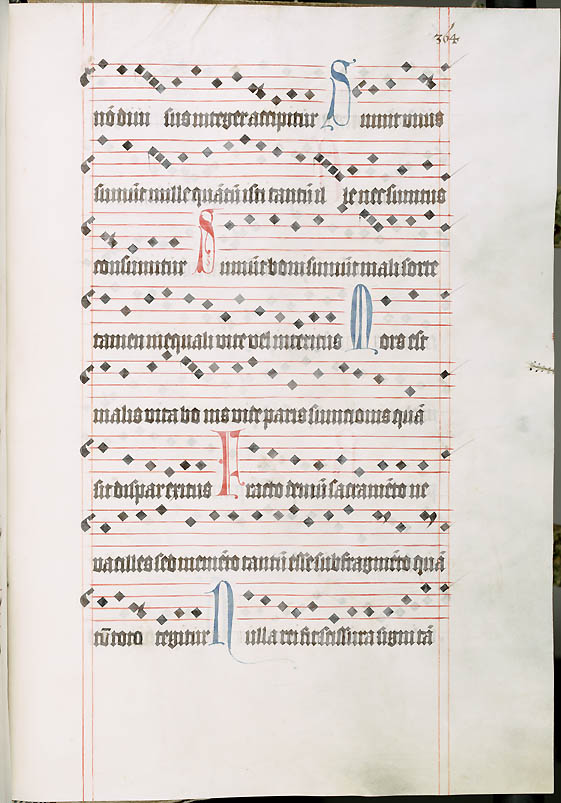 304
nō divisus integer accipitur Sumit unus
sumūt mille quātū isti tantū il le nec sumtus
consumitur Sumūt boni sumūt mali sorte
tamen inequali vite vel interitus Mors est
malis vita bonis vide paris sumcionis quā
sit dispar exitus Fracto demū sacramēto ne
vacilles sed memēto tantū esse sub fragmēto quā
tū toto tegitur Nulla rei fit scissura signi tā